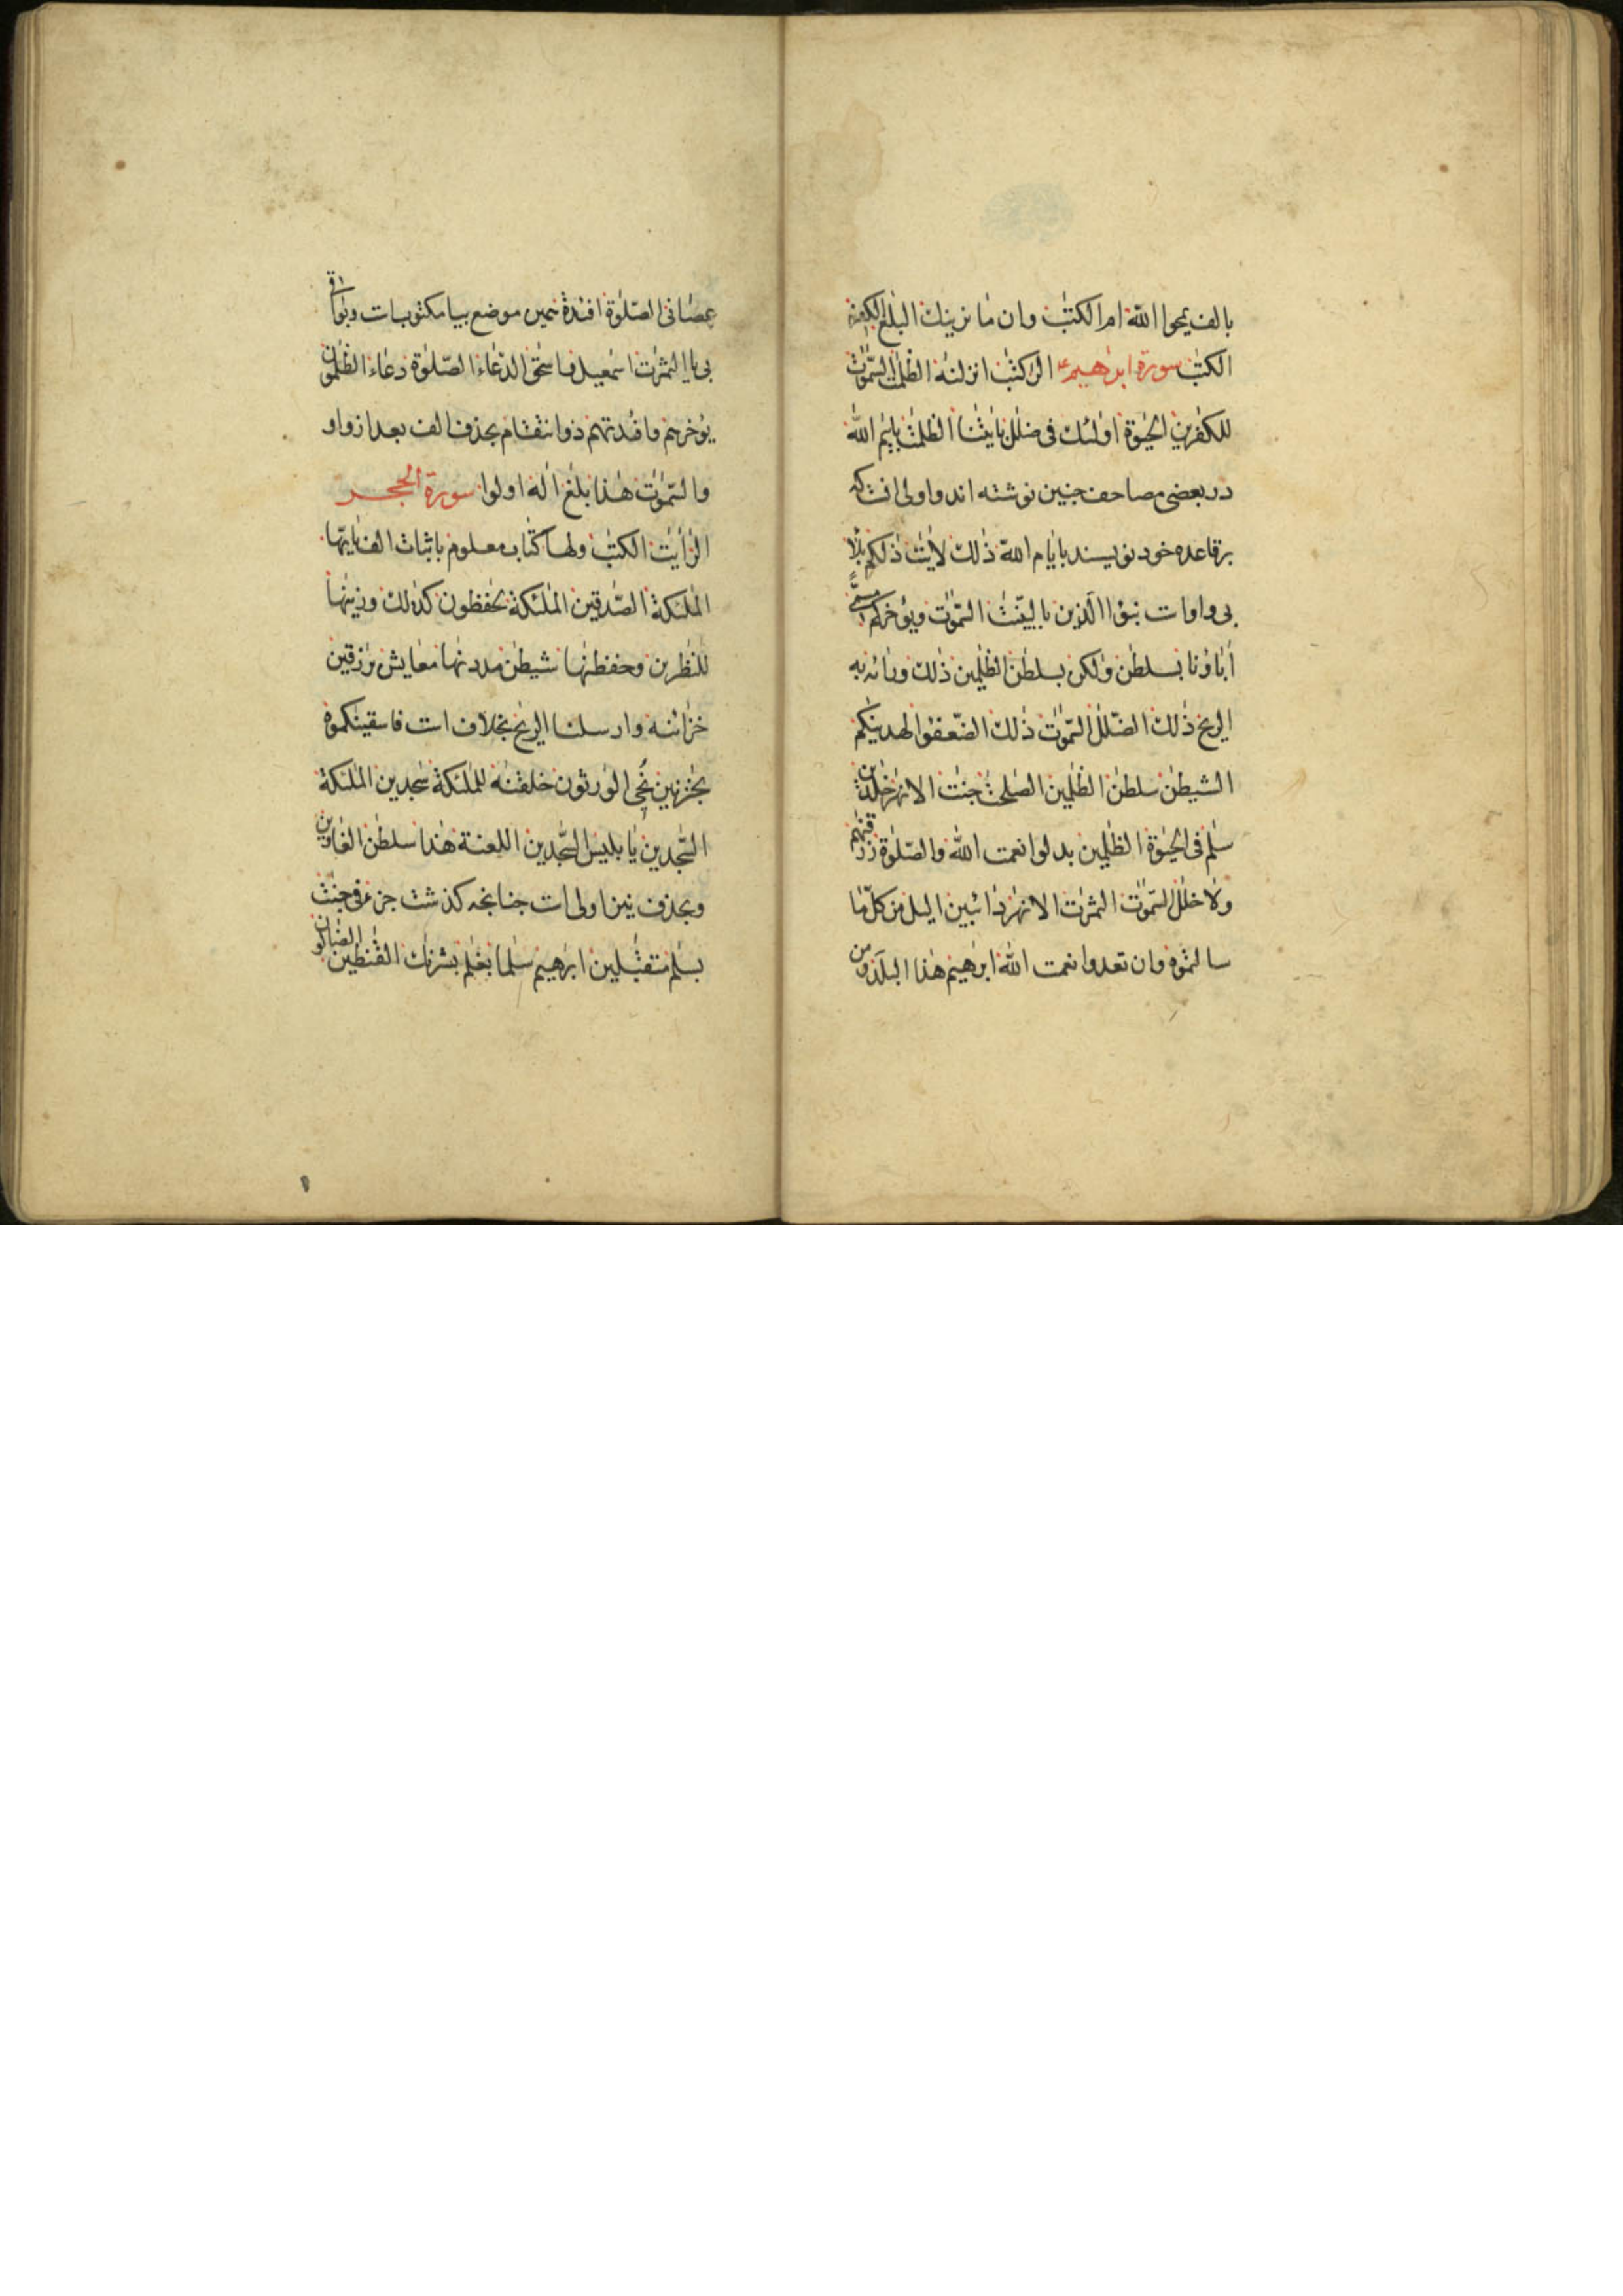 بالف يمحوا الله ام الكتب وان ما نرينك البلغ الكفر
الكتب سورة ابرهيم الر كتب انزلنه الظلمت السموت
للكفرين الحيوة اولئك فى ضلل بايتنا الظلمت باييم الله
در بعضى مصاحف چنين نوشته اند واولى انست كه
بر قاعده خود نويسند بايام الله ذلك لايت ذلكم بلا
بى واوات نبؤا الذين بالبينت السموت ويؤخركم مسمى
اباؤنا بسلطن ولكن بسلطن الظلمين ذلك ورائه به
الريح ذلك الضلل السموت ذلك الضعفؤا لهدينكم
الشيطن سلطن الظلمين الصلحت جنت الانهر خلدين
سلم فى الحيوة الظلمين بدلوا نعمت الله والصلوة رزقنهم
ولا خلل السموت الثمرت الانهر دائبين اليل من كل ما
سالتموه وان تعدوا نعمت الله ابرهيم هذا البلد ومن
عصانى الصلوة افئدة همين موضع بيا مكتوبات وبواقى
بى يا الثمرت اسمعيل واسحق الدعاء الصلوة دعاء الظلمون
يؤخرهم وافئدتهم ذو انتقام بحذف الف بعد از واو
والسموت هذا بلغ اله اولوا سورة الحجر
الر ايت الكتب ولها كتاب معلوم باثبات الف
الملئكة الصدقين الملئكة لحفظون كذلك وزينها
للنظرين وحفظنها شيطن مددنها معايش برزقين
خزائنه وارسلنا الريح بخلاف است فاسقينكموه
بخزنين نحى الورثون خلقنه للملئكة سجدين الملئكة
السجدين يابليس السجدين اللعنة هذا سلطن الغاوين
وبحذف نيز اولى است چنانچه كذشت جزء فى جنت
بسلم متقبلين ابرهيم سلما بغلم بشرنك القنطين الضالون